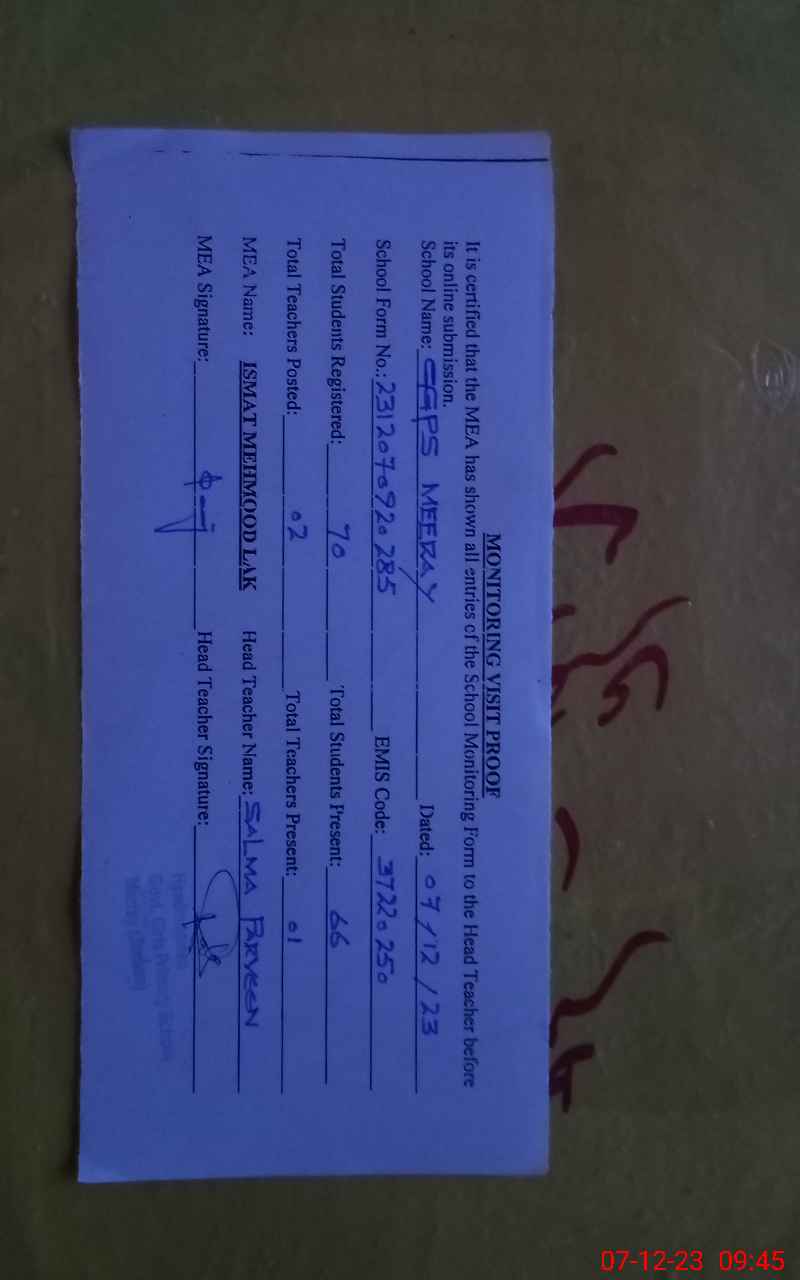 MONITORING VISIT PROOF
It is certified that the MEA has shown all entries of the School Monitoring Form to the Head Teacher before
its online submission.
School Name: GGPS MEERAY Dated: 07/12/23
School Form No.: 2312070920285 EMIS Code: 37220250
Total Students Registered: 70 Total Students Present: 66
Total Teachers Posted: 02 Total Teachers Present: 01
MEA Name: ISMAT MEHMOOD LAK Head Teacher Name: SALMA PARVEEN
MEA Signature: Head Teacher Signature:
Govt. Girls Primary School
07-12-23 09:45